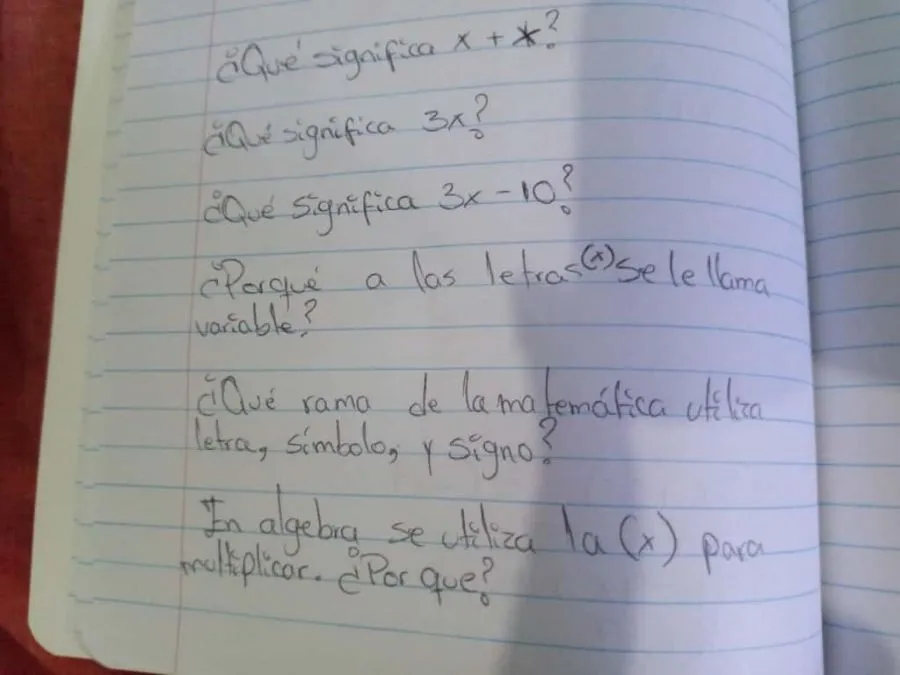 ¿Qué significa x + x?
¿Qué significa 3x?
¿Qué significa 3x - 10?
¿Porqué a las letras (x) se le llama
variable?
¿Qué rama de la matemática utiliza
letra, símbolo, y signo?
En algebra se utiliza la (x) para
multiplicar. ¿Por que?